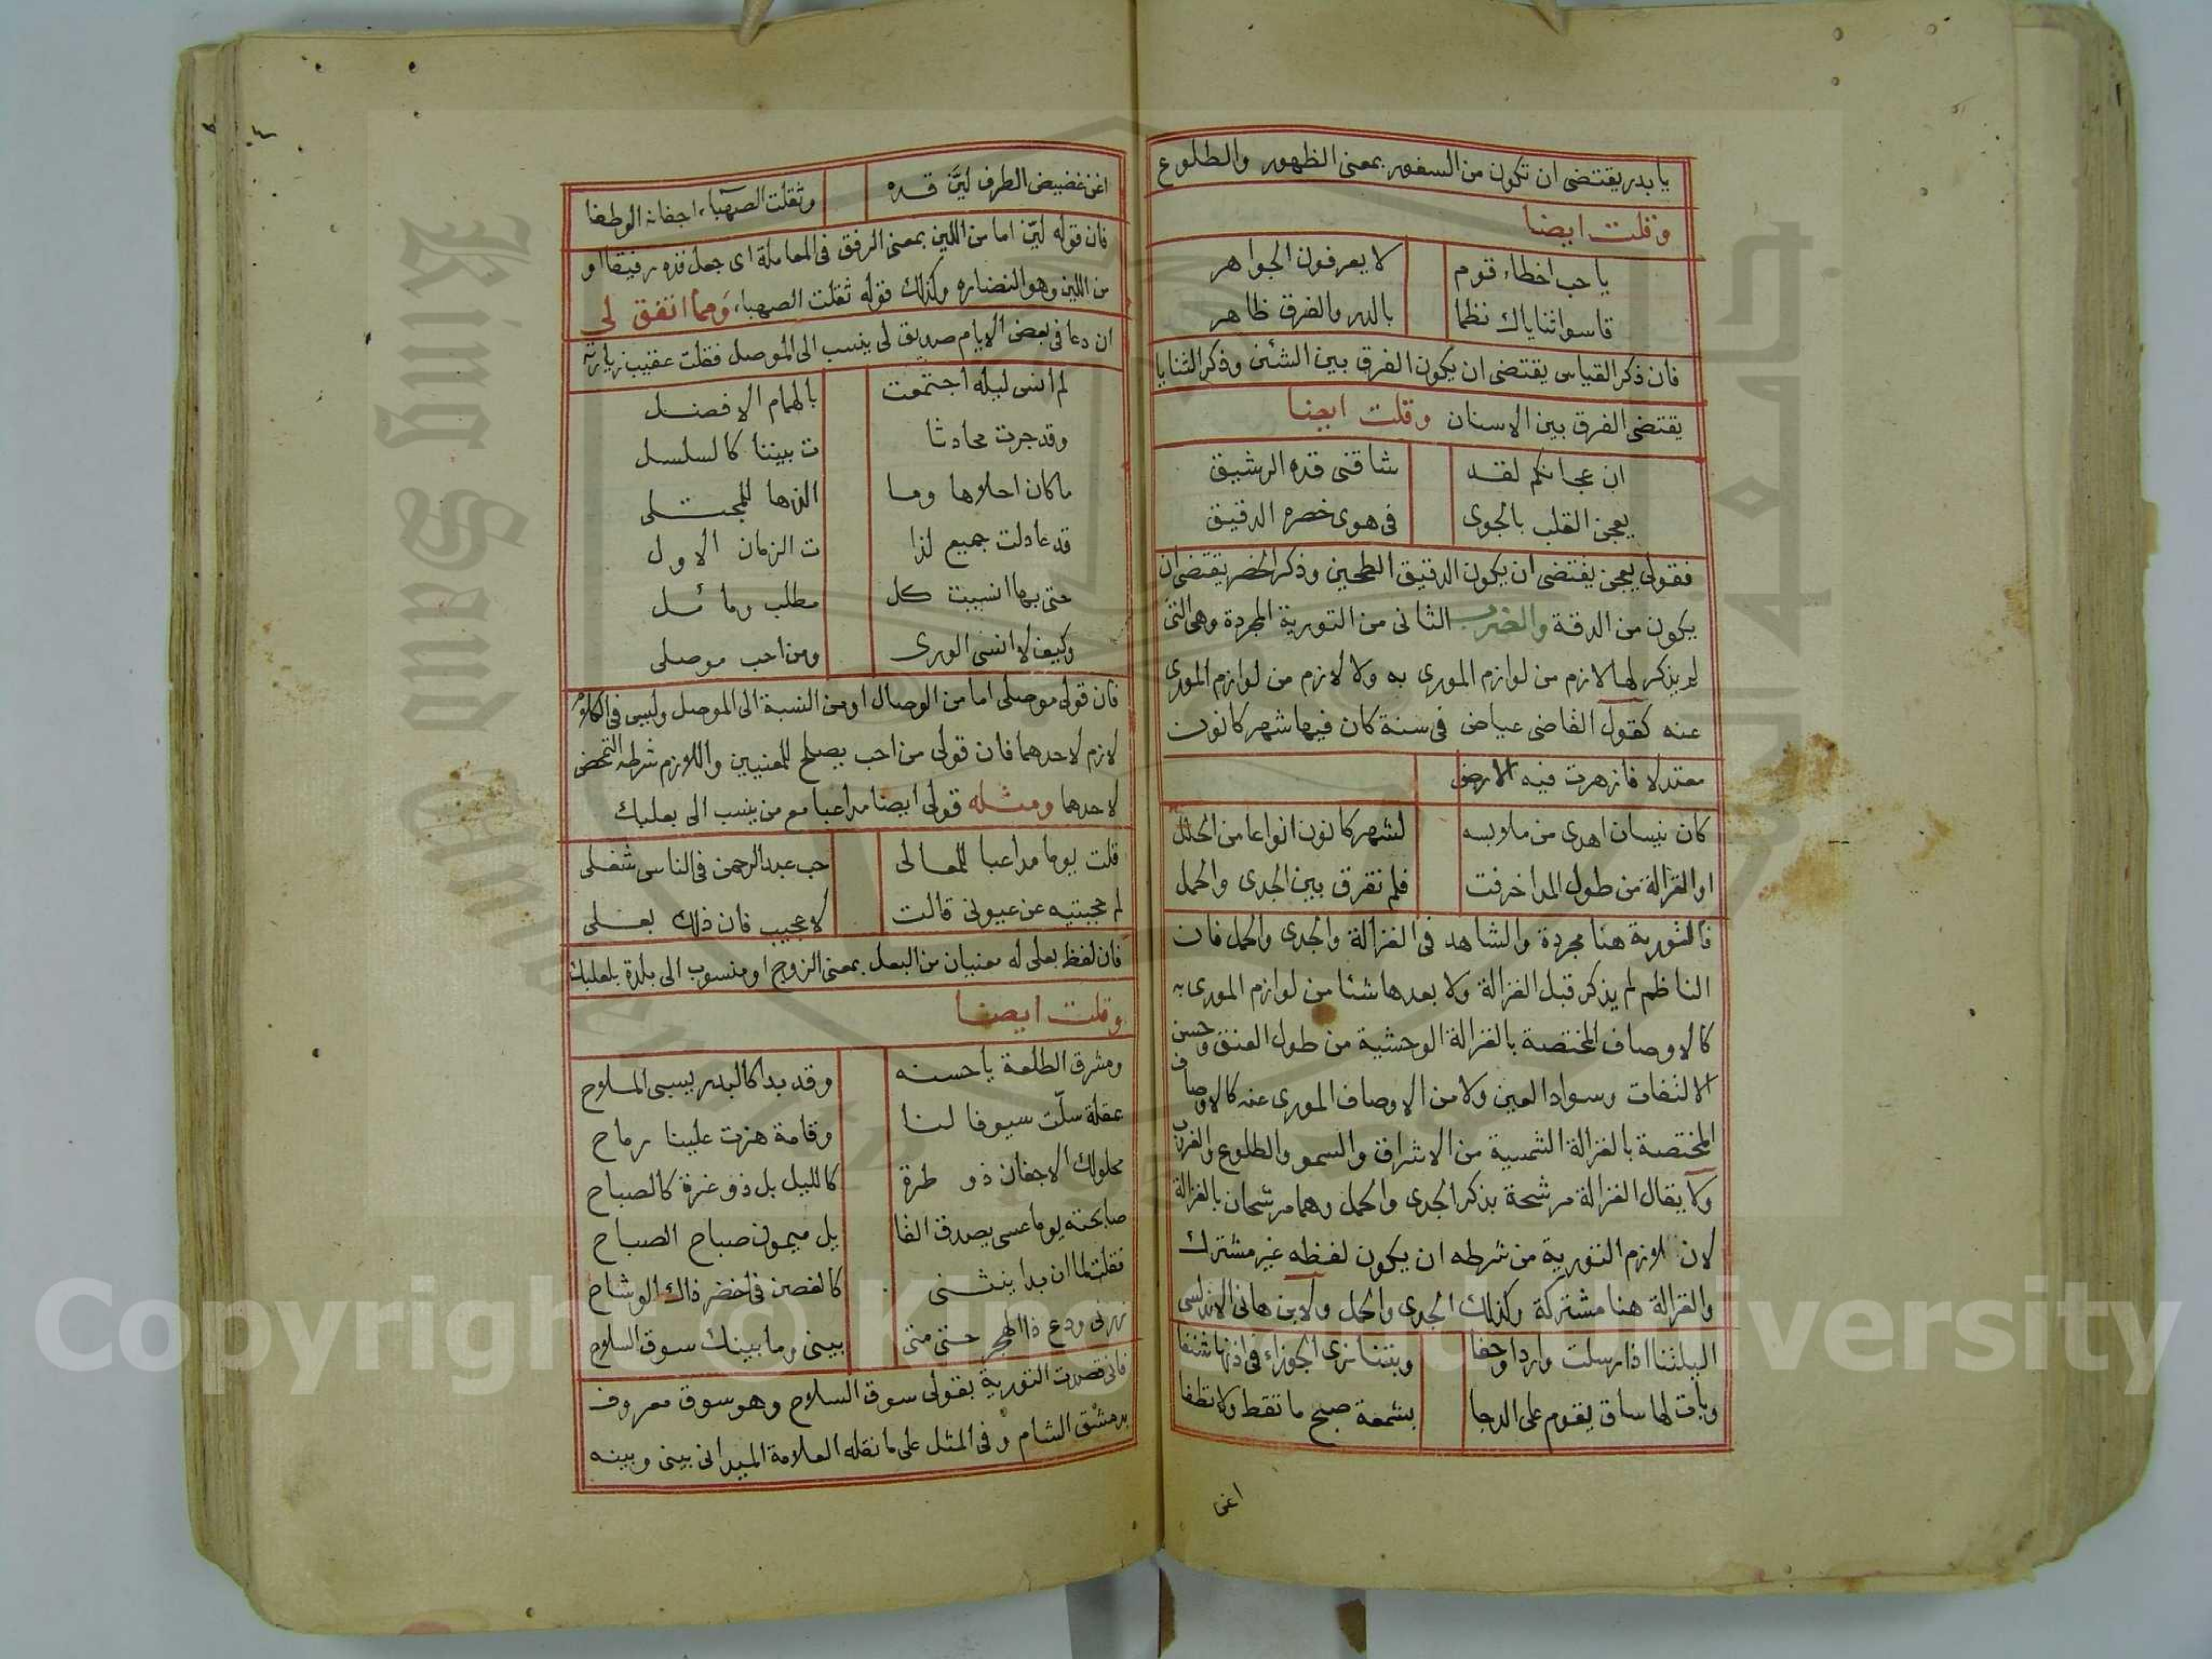 يا بدر يقتضى ان تكون من السفور بمعنى الظهور والطلوع
وقلت ايضا
يا حب اخطاء قوم لا يعرفون الجواهر
قاسوا ثناياك نظما بالدر والفرق ظاهر
فان ذكر القياس يقتضى ان يكون الفرق بين الشئين وذكر الثنايا
يقتضى الفرق بين الاسنان وقلت ايضا
ان عجانكم لقد شاقنى قده الرشيق
يعجن القلب بالجوى فى هوى خصره الدقيق
فقولى يعجن يقتضى ان يكون الدقيق الطحين وذكر الخصر يقتضى ان
يكون من الدقة والضرب الثانى من التورية المجردة وهى التى
لم يذكر لها لازم من لوازم المورى به ولا لازم من لوازم المورى
عنه كقول القاضى عياض فى سنة كان فيها شهر كانون
معتدلا فازهرت فيه الارض
كان نيسان اهدى من ملابسه لشهر كانون انواعا من الحلل
او الغزالة من طول المدا خرفت فلم تفرق بين الجدى والحمل
فالتورية هنا مجردة والشاهد فى الغزالة والجدى والحمل فان
الناظم لم يذكر قبل الغزالة ولا بعدها شئا من لوازم المورى به
كالاوصاف المختصة بالغزالة الوحشية من طول العنق وحسن
الالتفات وسواد العين ولا من الاوصاف المورى عنه كالاوصاف
المختصة بالغزالة الشمسية من الاشراق والسمو والطلوع والغروب
ولا يقال الغزالة مرشحة بذكر الجدى والحمل وهما مرشحان بالغزالة
لان لوازم التورية من شرطه ان يكون لفظه غير مشترك
والغزالة هنا مشتركة وكذلك الجدى والحمل ولابن هانى الاندلسى
اليلتنا اذ ارسلت واردا وحفا وبتنا نرى الجوزاء فى اذنها شنفا
وبات لها ساق يقوم على الدجا بشمعة صبح ما تقط ولا تطفا
اغن
اغن غضيض الطرف لين قده وثقلت الصهباء اجفانه الوطفا
فان قوله لين اما من اللين بمعنى الرفق فى المعاملة اى جعل قده رفيقا او
من اللين وهو النضاره وكذلك قوله ثقلت الصهباء ومما اتفق لى
ان دعا فى بعض الايام صديق لى ينسب الى الموصل فقلت عقيب زيارته
لم انسى ليله اجتمعت بالهمام الافضل
وقد جرت محادثا ت بيننا كالسلسل
ما كان احلاها وما الذها للمجتلى
قد عادلت جميع لذا ت الزمان الاول
حتى بها انسيت كل مطلب ومائل
وكيف لا انسى الورى ومن احب موصلى
فان قولى موصلى اما من الوصال او من النسبة الى الموصل وليس فى الكلام
لازم لاحدهما فان قولى من احب يصلح للمعنيين واللازم شرطه التمحض
لاحدهما ومثله قولى ايضا مداعبا مع من ينسب الى بعلبك
قلت يوما مداعبا للمعالى حب عبد الرحمن فى الناس شغلى
لم حجبتيه عن عيونى قالت لا عجيب فان ذلك بعلى
فان لفظ بعلى له معنيان من البعل بمعنى الزوج او منسوب الى بلدة بلعلبك
وقلت ايضا
ومشرق الطلعة يا حسنه وقد بدا كالبدر يسبى الملاح
عقلة سلّت سيوفا لنا وقامة هزت علينا رماح
محلولك الاجفان ذو طرة كالليل بل ذو غرة كالصباح
صابحته يوما عسى يصدق الفا يل ميمون صباح الصباح
فقلت لما ان بدا ينثنى كالغصن فى اخضر ذاك الوشاح
زرنى ودع ذا الهجر حتى متى بينى وما بينك سوق السلاح
فانى قصدت التورية بقولى سوق السلاح وهو سوق معروف
بدمشق الشام وفى المثل على ما نقله العلامة الميدانى بينى وبينه
King Saud University
Copyright © King Saud University